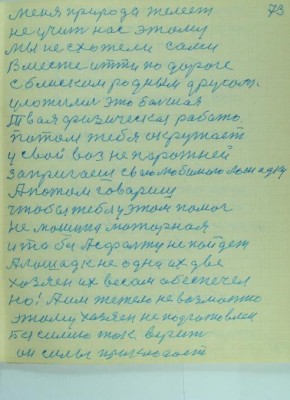 73
меня природа жалеет
не учит нас этому
мы не схожели сами
Вместе итти по дороге
с блиским родным другом.
уложили это бальшая
Твая физическая работо.
потом тебя окружает
у свой воз не порожней
Запригаеш своюлюбимого лошадку
А потом товарищ
чтобы тебе у этом помог
не машина моторная
и то бы Асфалту не пойдет
Алошадк не одна их две
хозяен их весом обеспечел
но! Аим тежело невозможно
этому хозяен не подготовлен
так верит
он силы прикладает